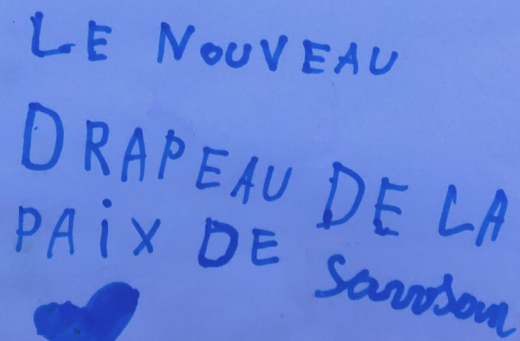 LE NOUVEAU
DRAPEAU DE LA
PAiX DE